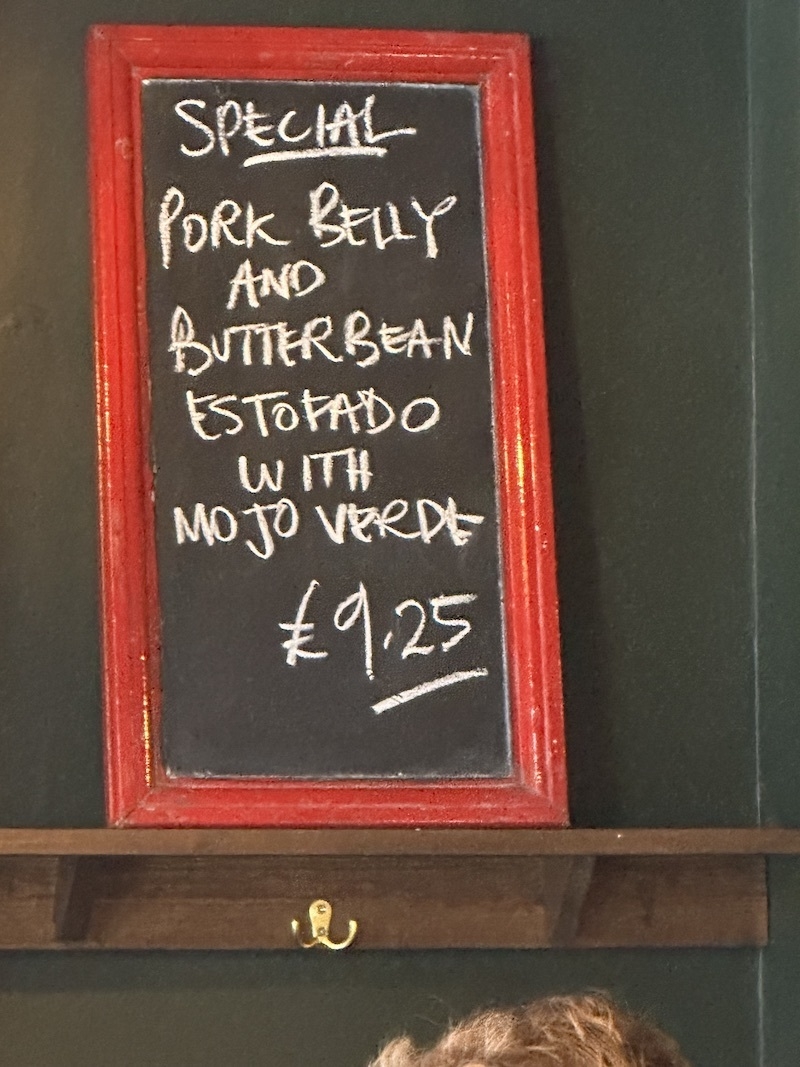 SPECIAL
PORK BELLY
AND
BUTTERBEAN
ESTOFADO
WITH
MOJO VERDE
£9.25